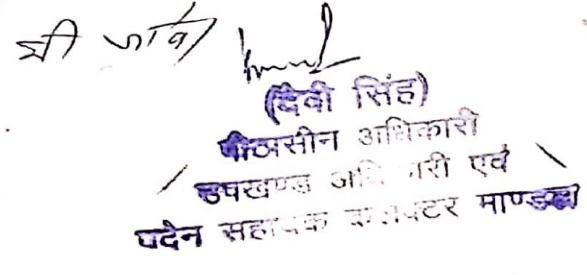 श्री
(देवी सिंह)
पीठासीन अधिकारी
उपखण्ड अधिकारी एवं
पदेन सहायक कलेक्टर